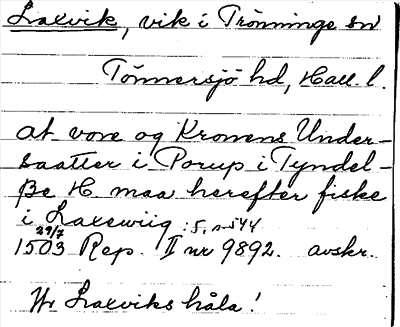 Laxvik, vik i Trönninge sn
Tönnersjö hd, Hall. l.
at vore og Kronens Under-
saatter i Porup i Tyndel-
ße H. maa herefter fiske
i Laxewiig : s. 544
29/7
1503 Rep. II nr 9892. avskr.
Hr Laxviks håla!